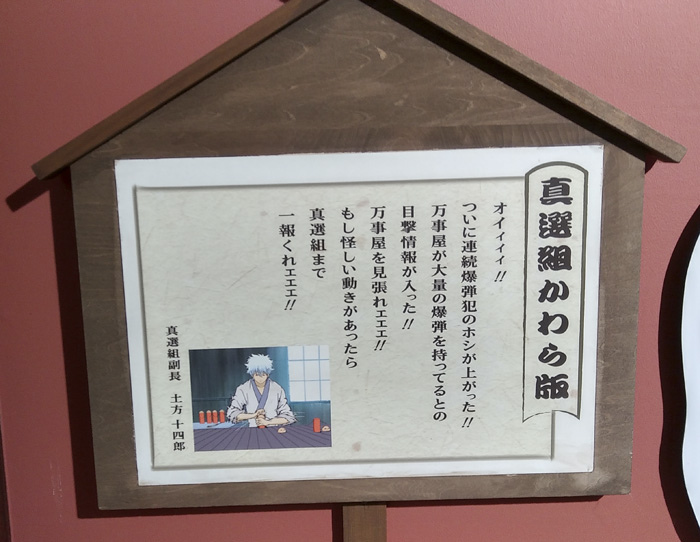 真選組かわら版
オイィィィ!!
ついに連続爆弾犯のホシが上がった!!
万事屋が大量の爆弾を持ってるとの
目撃情報が入った!!
万事屋を見張れェェェ!!
もし怪しい動きがあったら
真選組まで
一報くれェェェ!!
真選組副長 土方 十四郎